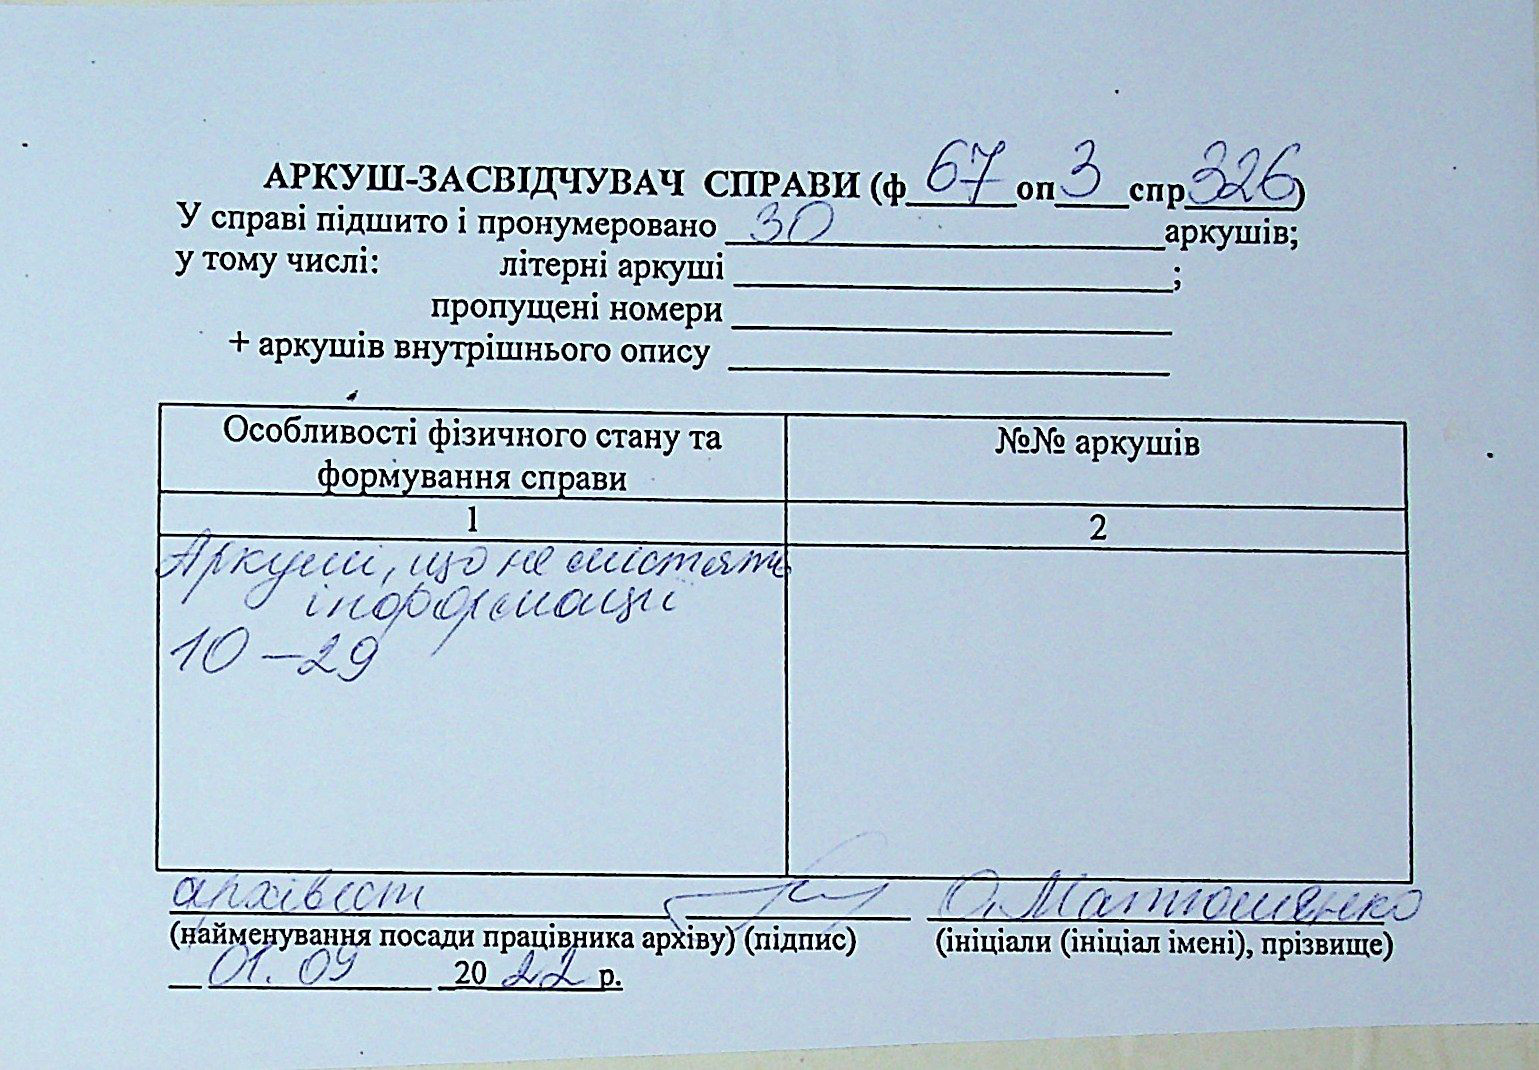 АРКУШ-ЗАСВІДЧУВАЧ СПРАВИ (ф 67 оп 3 спр 326)
У справі підшито і пронумеровано 30 аркушів;
у тому числі: літерні аркуші ;
пропущені номери
+ аркушів внутрішнього опису
Особливості фізичного стану та
формування справи
№№ аркушів
1
2
Аркуші, що не містять
інформації
10 – 29
архівіст О. Матюшенко
(найменування посади працівника архіву) (підпис) (ініціали (ініціал імені), прізвище)
01.09 2022 р.